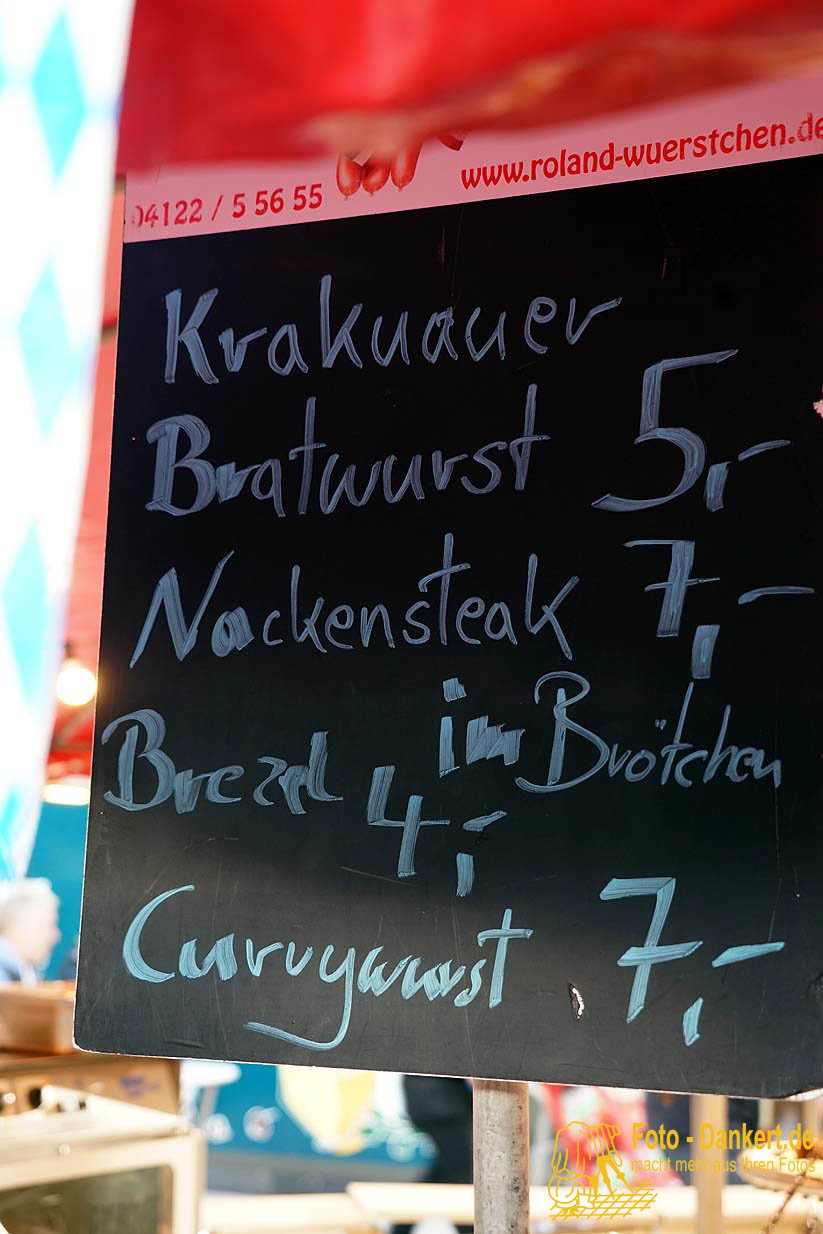 04122 / 5 56 55
www.roland-wuerstchen.de
Krakauer
Bratwurst 5,-
Nackensteak 7,-
im Brötchen
Brezel 4,-
Currywurst 7,-
Foto - Dankert.de
macht mehr aus Ihren Fotos